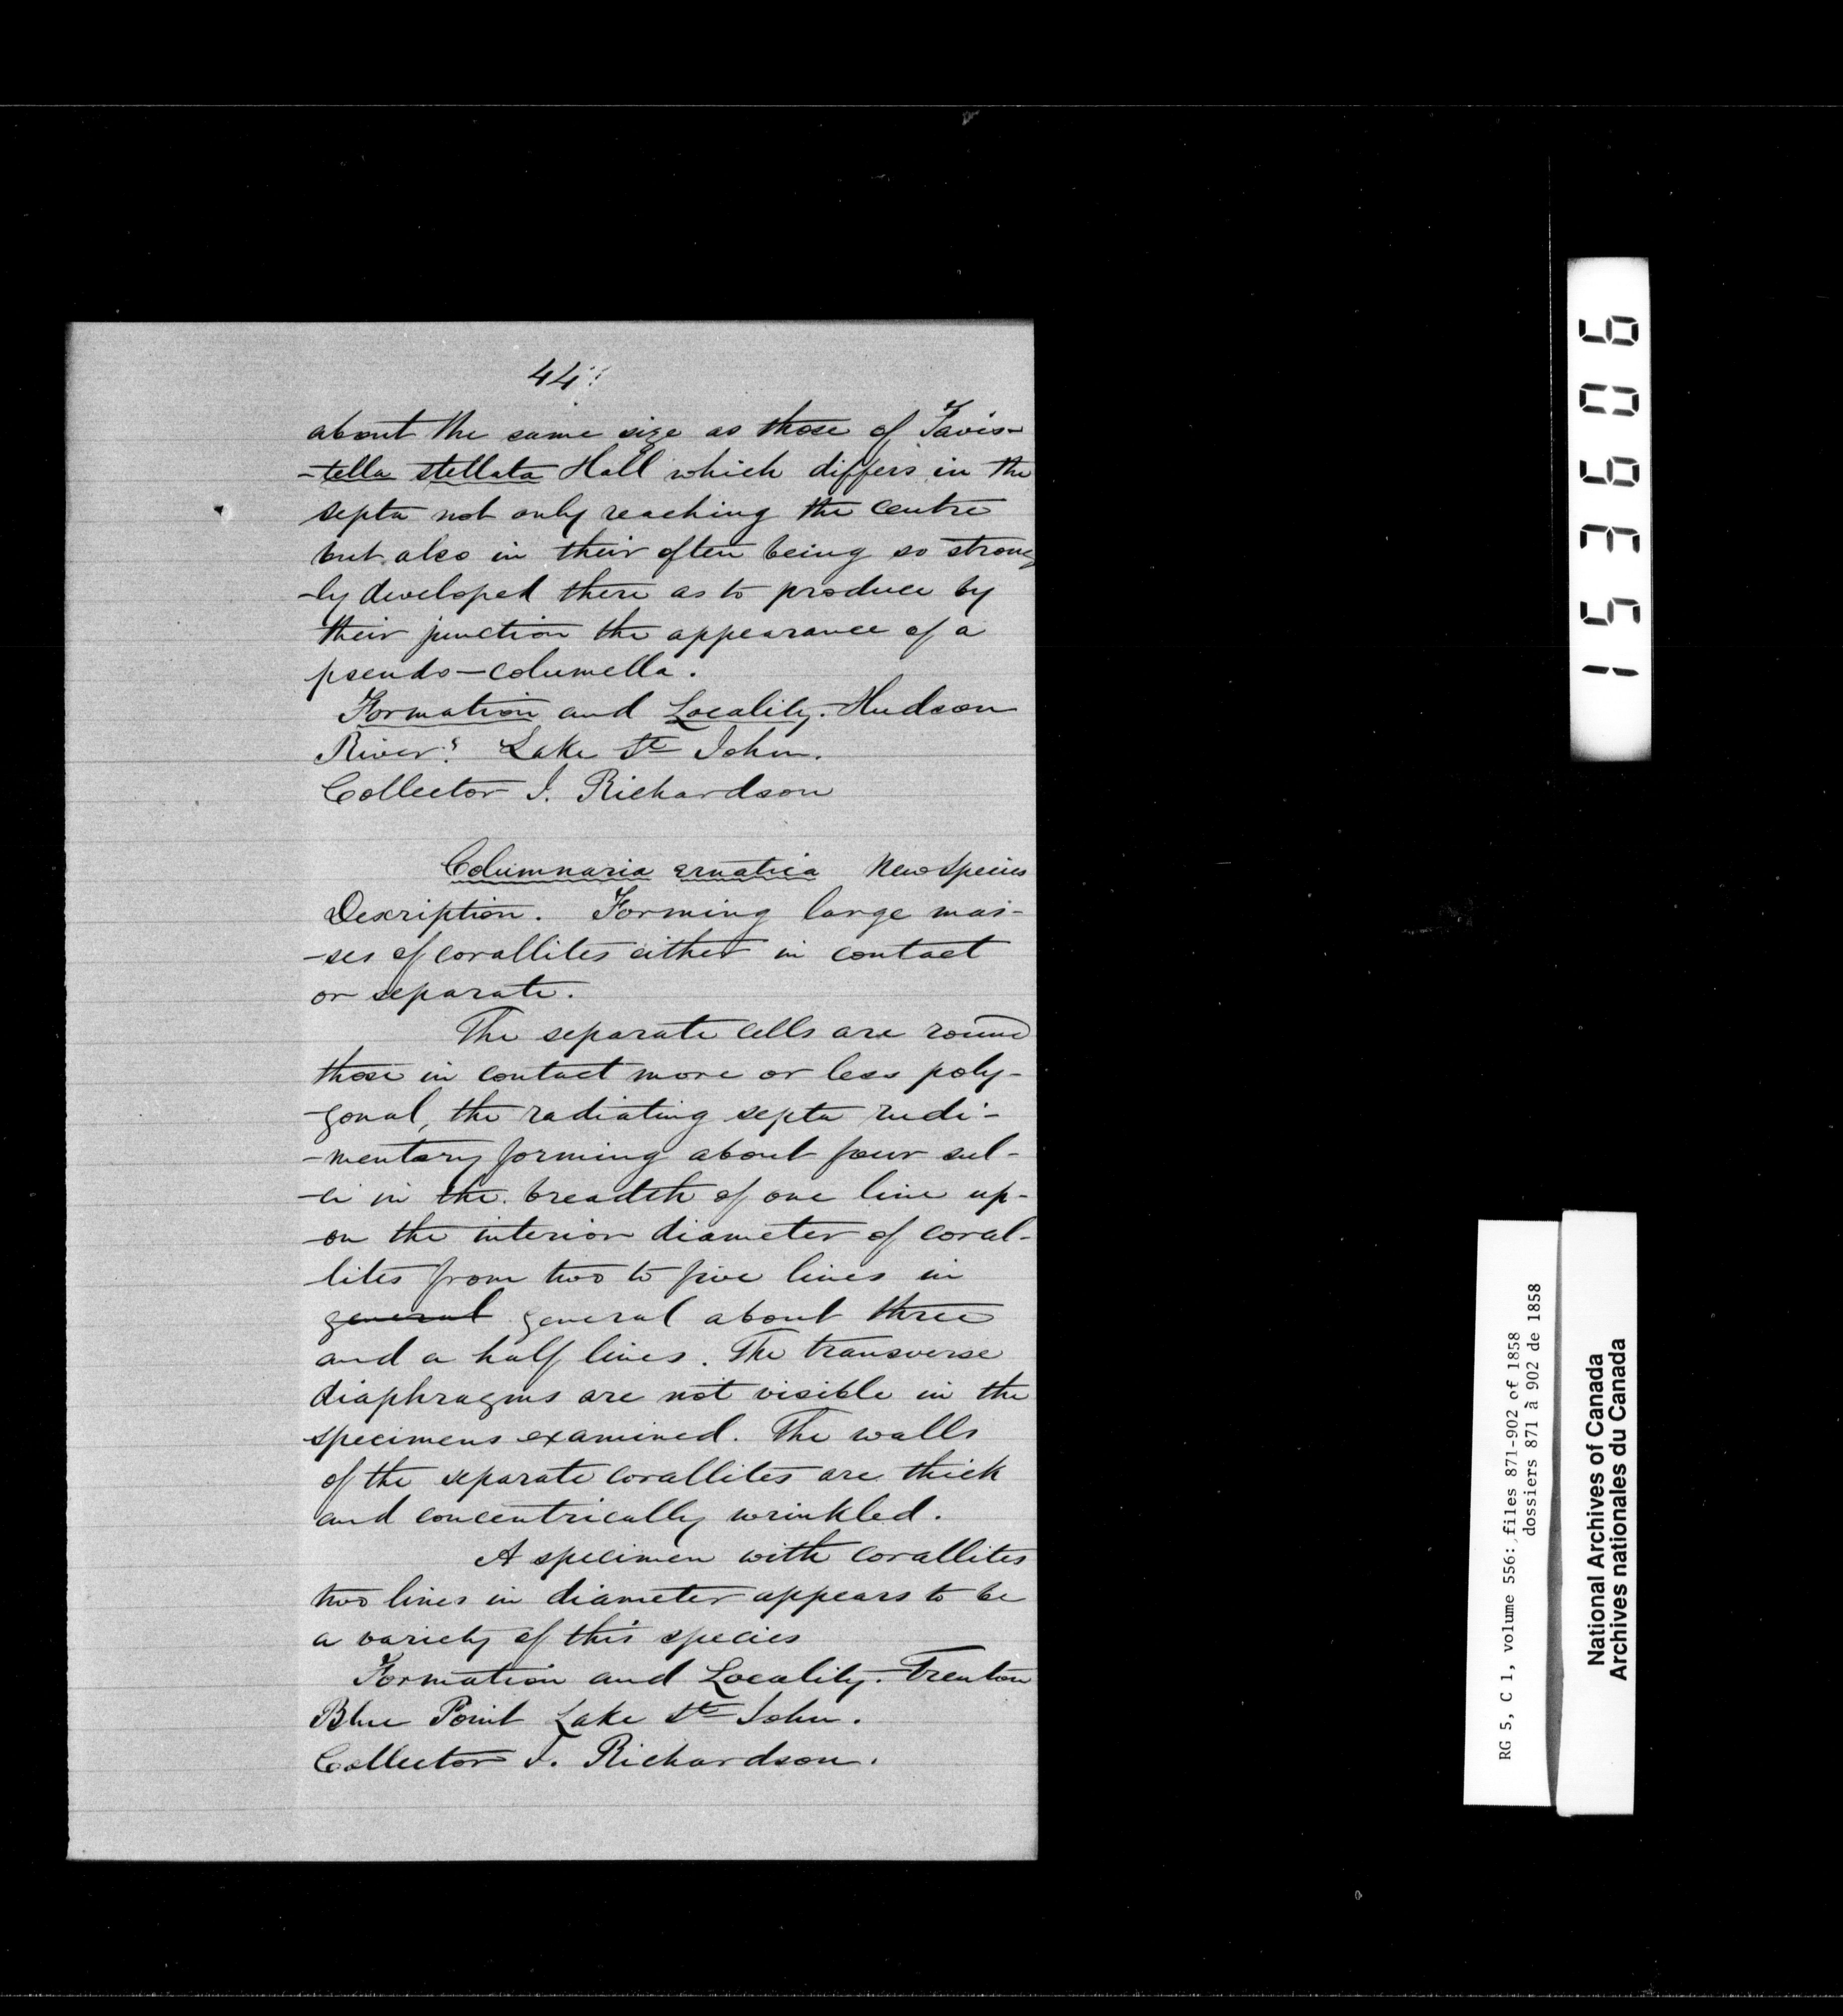 44
about the same size as those of Favis-
-tella stellata Hall which differs in the
septa not only reaching the centre
but also in their often being so strong
-ly developed there as to produce by
their junction the appearance of a
pseudo-columella.
Formation and Locality. Hudson
River? Lake St John.
Collector J. Richardson
Columnaria erratica New Species
Description. Forming large mas-
-ses of corallites either in contact
or separate.
The separate cells are round
those in contact more or less poly-
-gonal, the radiating septa rudi-
-mentary forming about four sul-
-ci in the breadth of one line up-
-on the interior diameter of coral-
-lites from two to five lines in
general general about three
and a half lines. The transverse
diaphragms are not visible in the
specimens examined. The walls
of the separate corallites are thick
and concentrically wrinkled.
A specimen with corallites
two lines in diameter appears to be
a variety of this species
Formation and Locality. Trenton
Blue Point Lake St John.
Collector J. Richardson.
153606
RG 5, C 1, volume 556: files 871-902 of 1858
dossiers 871 à 902 de 1858
National Archives of Canada
Archives nationales du Canada